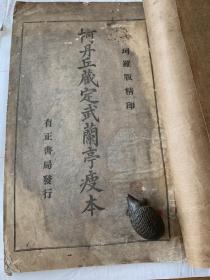 珂羅版精印
柯丹丘藏定武蘭亭瘦本
有正書局發行